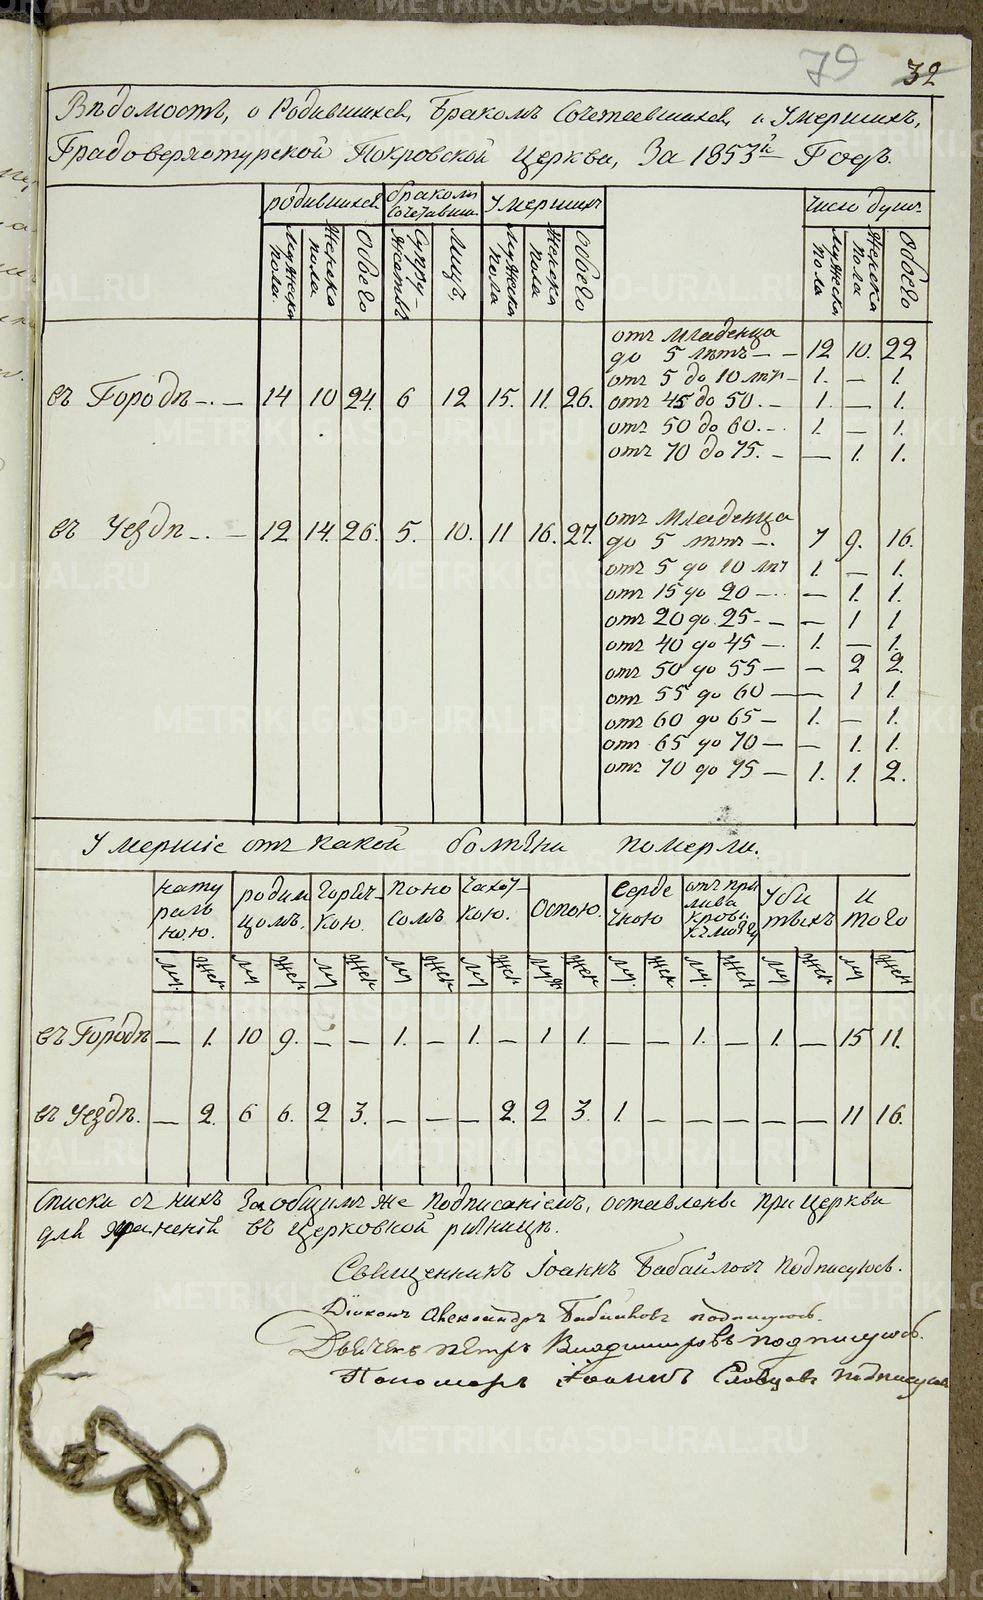 79 32
Вѣдомость, о Родившихся, Бракомъ Сочетавшихся, и Умершихъ,
Градоверхотурской Покровской Церкви, За 1853й Годъ.
родившихся бракомъ сочетавших. Умершихъ число душъ
Мужеска пола. Женска пола Обоего Супружествъ Лицъ. Мужеска пола Женска пола Обоего Мужеска пола Женска пола Обоего
въ Городѣ 14 10 24. 6 12 15. 11. 26.
отъ Младенца
до 5 лѣтъ — 12 10. 22
отъ 5 до 10 лѣт — 1. — 1.
отъ 45 до 50. — 1. — 1.
отъ 50 до 60. — 1. — 1.
отъ 70 до 75. — — 1. 1.
въ Уездѣ 12 14. 26. 5. 10. 11 16. 27.
отъ Младенца
до 5 лѣтъ —. 7 9. 16.
отъ 5 до 10 лѣт 1. — 1.
отъ 15 до 20 — — 1. 1.
отъ 20 до 25. — — 1 1
отъ 40 до 45 — 1. — 1.
отъ 50 до 55 — — 2 2.
отъ 55 до 60 — — 1 1.
отъ 60 до 65 — 1. — 1.
отъ 65 до 70 — — 1. 1.
отъ 70 до 75 — 1. 1. 2.
Умершіе отъ какой болѣзни померли.
натуральною. родимцомъ. Горячкою. поносомъ Чахоткою. Оспою. Сердечною отъ прилива крови Убитыхъ и того
му. жен му жен му жен му жен му жен муж жен му. жен му. жен му жен му жен
въ Городѣ — 1. 10 9. — — 1. — 1. — 1 1. — — 1. — 1. — 15 11.
въ Уездѣ. — 2. 6 6. 2 3. — — — 2. 2 3. 1. — — — — — 11 16.
Списки съ нихъ за общимъ же подписаніемъ, оставлены при Церкви
для храненія въ Церковной ризницѣ.
Священникъ Іоаннъ Бабайловъ подписуюсь.
Діаконъ Александръ подписуюсь.
Дьячекъ Петръ Владимировъ подписуюсь.
Пономарь Іоаннъ Словцовъ подписуюсь
METRIKI.GASO-URAL.RU